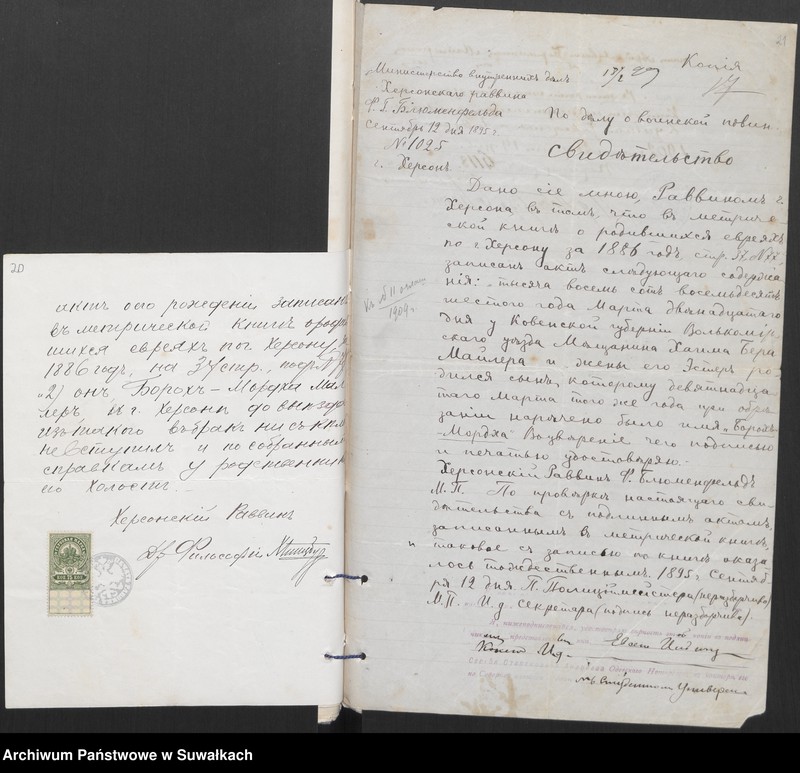 20
актъ о его рожденіи записанъ
въ метрической книгѣ о родив
шихся евреяхъ по г. Херсону за
1886 годъ, на 37 стр., подъ №
„2) онъ Борохъ-Мордха Май
леръ, изъ г. Херсона до выѣзда
изъ такого въ бракъ ни съ кѣмъ
не вступилъ и по собраннымъ
справкамъ у родственниковъ
его холостъ.
Херсонскій Раввинъ
Философіи
21
Копія
17
Министерство внутреннихъ дѣлъ
Херсонскаго раввина
Ф. Г. Блюменфельда
Сентября 12 дня 1895 г.
№ 1025
г. Херсонъ
По дѣлу о воинской повин.
Свидѣтельство
Дано сіе мною, Раввиномъ г.
Херсона, въ томъ, что въ метриче-
ской книгѣ о родившихся евреяхъ
по г. Херсону за 1886 годъ, стр. 37, №
записанъ актъ слѣдующаго содержа
нія: тысяча восемь сотъ восемьдесятъ
шестого года Марта двѣнадцатаго
дня у Ковенской губерніи Вилькомір
скаго уѣзда Мѣщанина Хаима Бера
Майлера и жены его Эстеръ ро-
дился сынъ, которому девятнадца-
таго Марта того же года при обрѣ
заніи наречено было имя „Борохъ
-Мордха" Во увѣреніе чего подписью
и печатью удостовѣряю.
Херсонскій Раввинъ Ф. Блюменфельдъ
М. П. По провѣркѣ настоящаго сви-
дѣтельства съ подлиннымъ актомъ,
записаннымъ въ метрической книгѣ,
таковое съ записью по книгѣ оказа
лось тождественнымъ. 1895 г. Сентяб
ря 12 дня П. Полиціймейстера (неразборчиво)
М. П. И. д. секретаря (подпись неразборчива).
1909 г.
Archiwum Państwowe w Suwałkach